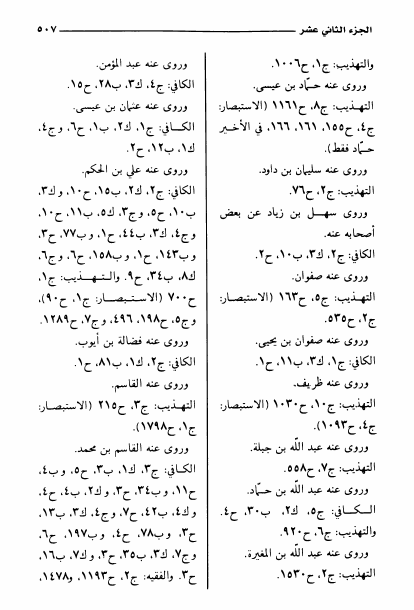 الجزء الثاني عشر
٥٠٧
والتهذيب: ج١، ح١٠٠٦.
وروى عنه حمّاد بن عيسى.
التهذيب: ج٨، ح١١٦١ (الاستبصار:
ج٤، ح١٥٥، ١٦١، ١٦٦، في الأخير
حمّاد فقط).
وروى عنه سليمان بن داود.
التهذيب: ج٢، ح٧٦.
وروى سهل بن زياد عن بعض
أصحابه عنه.
الكافي: ج٢، ك٣، ب١٠، ح٢.
وروى عنه صفوان.
التهذيب: ج٥، ح١٦٣ (الاستبصار:
ج٢، ح٥٣٥.
وروى عنه صفوان بن يحيى.
الكافي: ج١، ك٣، ب١١، ح١.
وروى عنه ظريف.
التهذيب: ج١٠، ح١٠٣٠ (الاستبصار:
ج٤، ح١٠٩٣).
وروى عنه عبد اللّه بن جبلة.
التهذيب: ج٧، ح٥٥٨.
وروى عنه عبد اللّه بن حمّاد.
الكافي: ج٥، ك٢، ب٣٠، ح٤.
والتهذيب: ج٦، ح٩٢٠.
وروى عنه عبد اللّه بن المغيرة.
التهذيب: ج٢، ح١٥٣٠.
وروى عنه عبد المؤمن.
الكافي: ج٤، ك٣، ب٢٨، ح١٥.
وروى عنه عثمان بن عيسى.
الكافي: ج١، ك٢، ب١، ح٦، وج٤،
ك١، ب١٢، ح٢.
وروى عنه علي بن الحكم.
الكافي: ج٢، ك٢، ب١٥، ح١٠، وك٣،
ب١٠، ح٥، وج٣، ك٥، ب١١، ح١٠،
وج٤، ك٣، ب٤٤، ح١، وب٧٧، ح٣،
وب١٤٣، ح١، وب١٥٨، ح٦، وج٦،
ك٨، ب٣٤، ح٩. والتهذيب: ج١،
ح٧٠٠ (الاستبصار: ج١، ح٩٠)،
وج٥، ح١٩٨، ٤٩٦، وج٧، ح١٢٨٩.
وروى عنه فضالة بن أيوب.
الكافي: ج٢، ك١، ب٨١، ح١.
وروى عنه القاسم.
التهذيب: ج٣، ح٢١٥ (الاستبصار:
ج١، ح١٧٩٨).
وروى عنه القاسم بن محمد.
الكافي: ج٣، ك١، ب٣، ح٥، وب٤،
ح١١، وب٣٤، ح٣، وك٢، ب٤، ح٤،
وك٤، ب٤٢، ح٧، وج٤، ك٣، ب١٣،
ح٣، وب٧٨، ح٤، وب١٩٧، ح٦،
وج٧، ك٣، ب٣٥، ح٣، وك٧، ب١٦،
ح٣. والفقيه: ج٢، ح١١٩٣، و١٤٧٨،